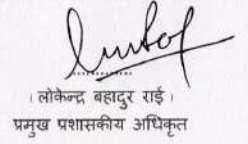 । लोकेन्द्र बहादुर राई ।
प्रमुख प्रशासकीय अधिकृत